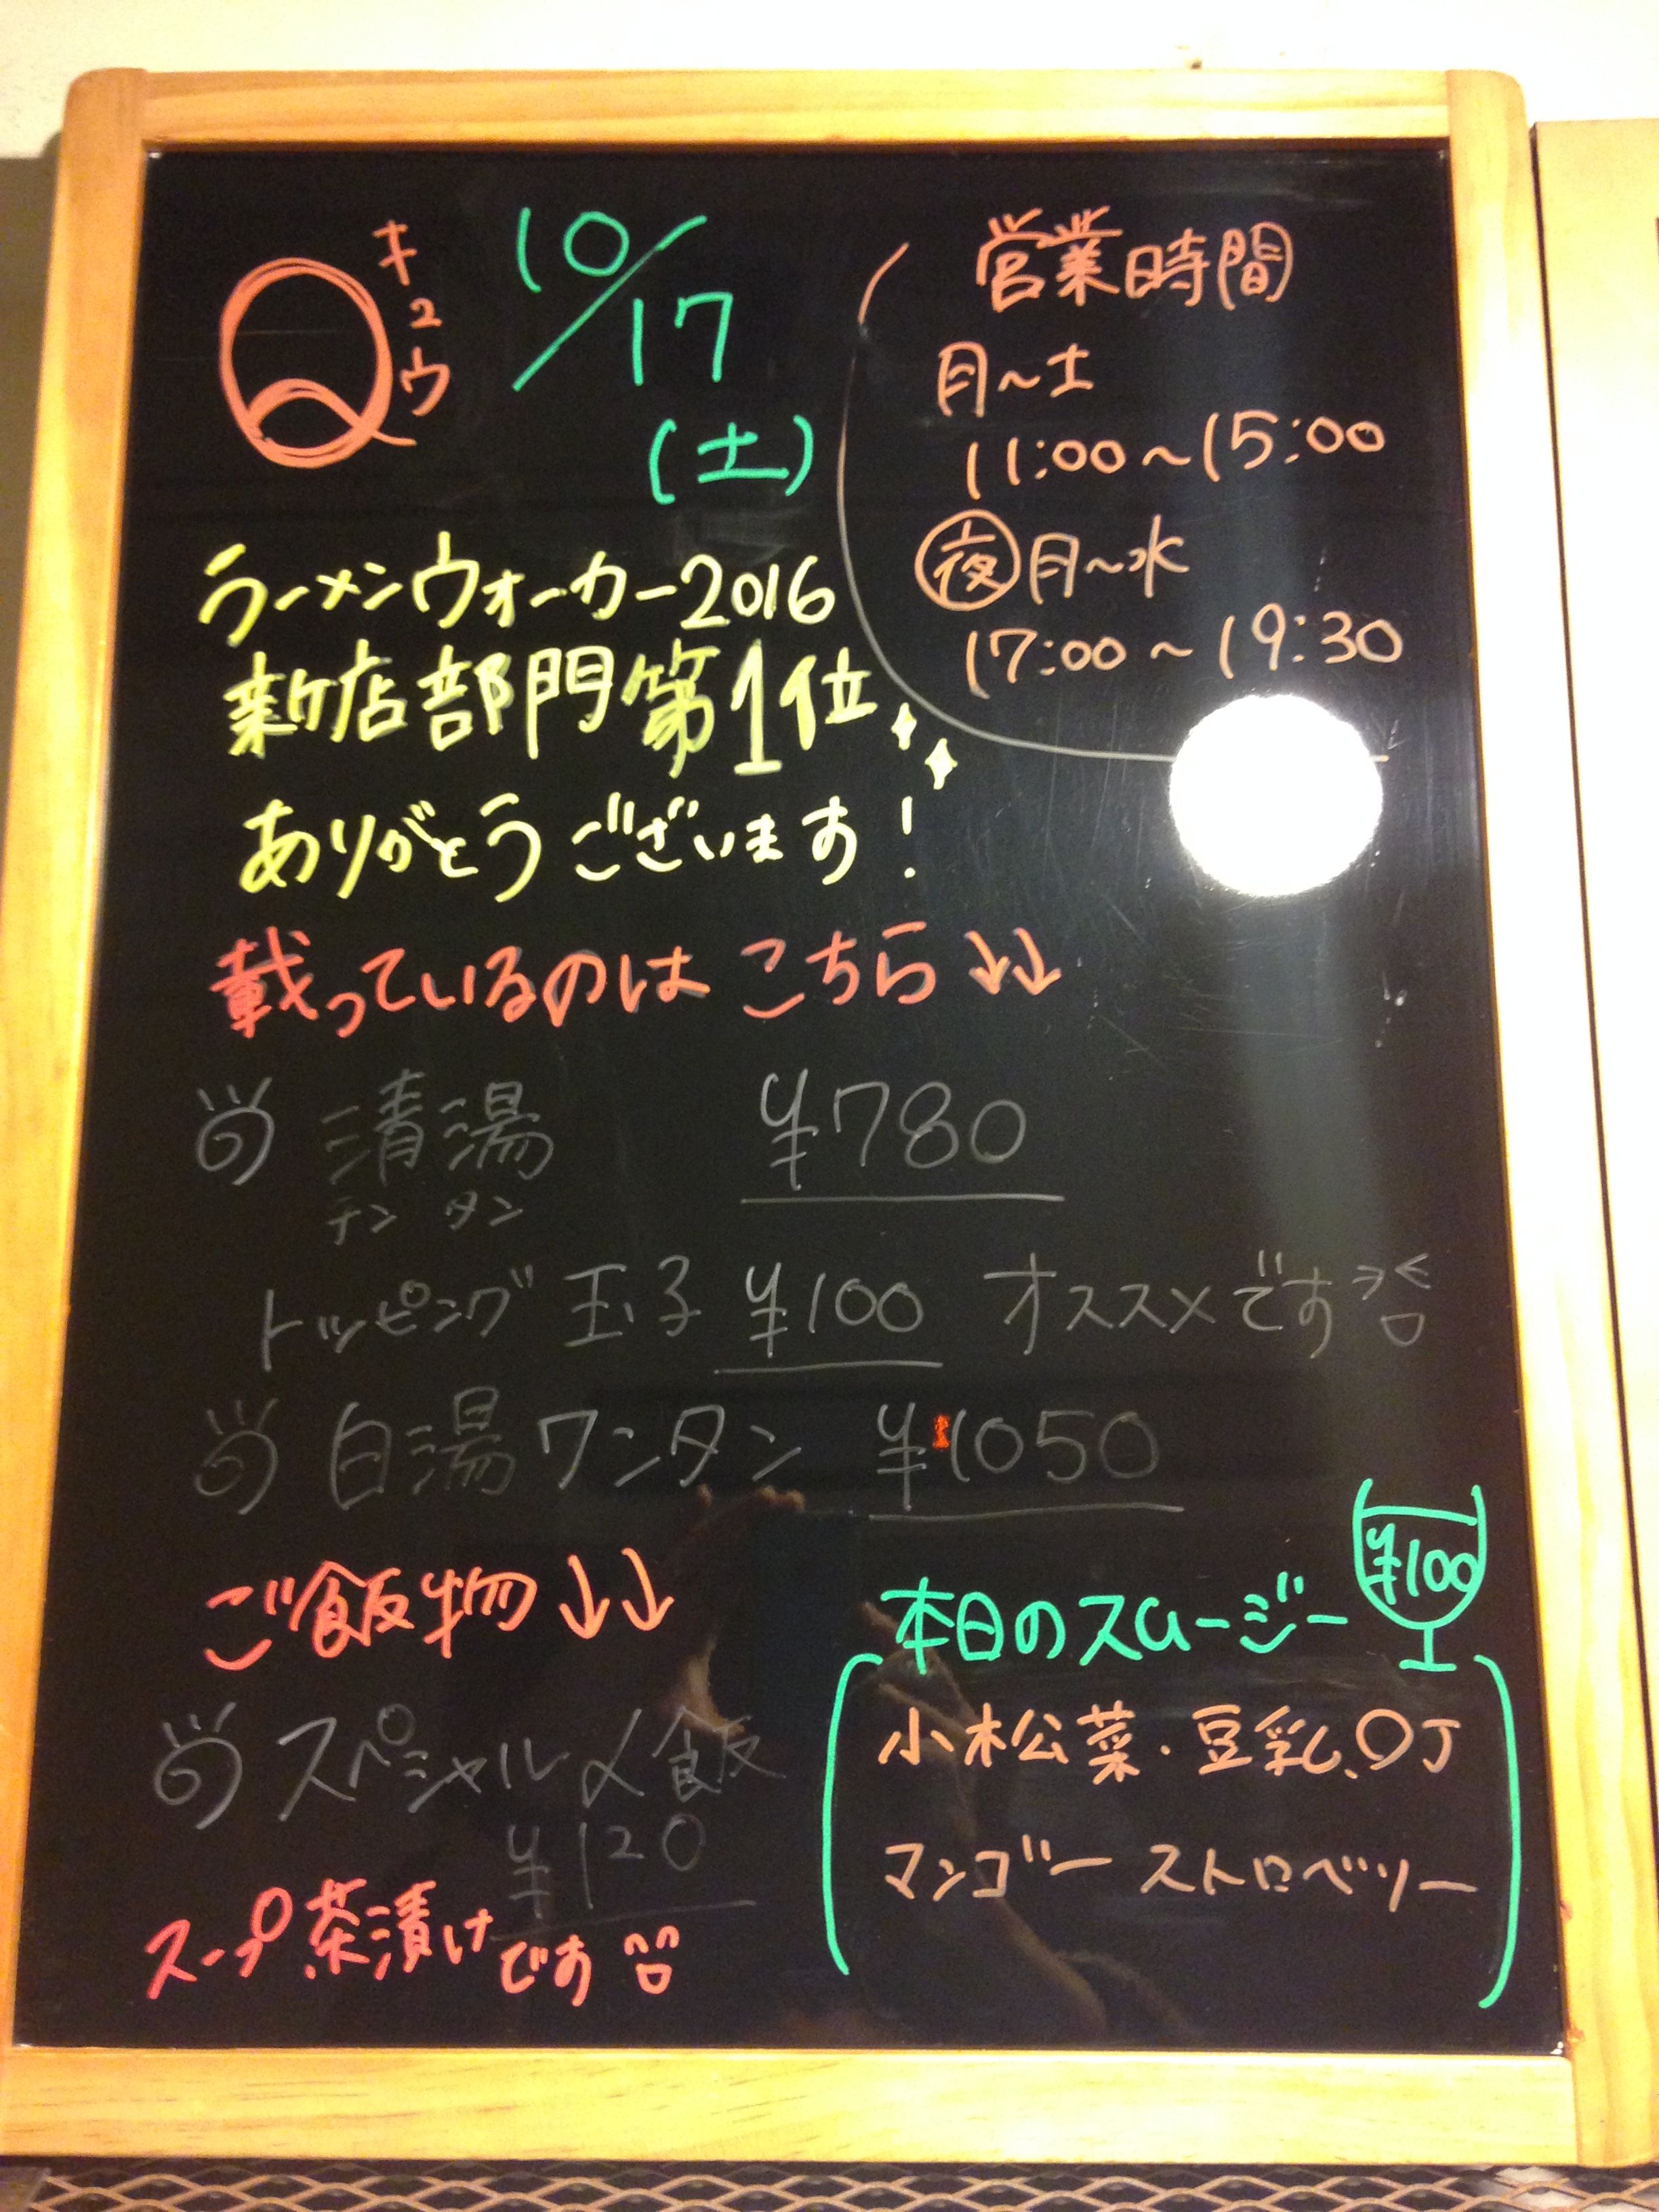 Q キュウ
10/17
(土)
営業時間
月〜土
11:00〜15:00
夜 月〜水
17:00〜19:30
ラーメンウォーカー2016
新店部門第1位
ありがとうございます!
載っているのは こちら↓↓
清湯 ¥780
チンタン
トッピング 玉子 ¥100 オススメです
白湯ワンタン ¥1050
ご飯物↓↓
スペシャル〆飯
¥120
スープ茶漬けです
¥100
本日のスムージー
小松菜・豆乳、OJ
マンゴー ストロベリー